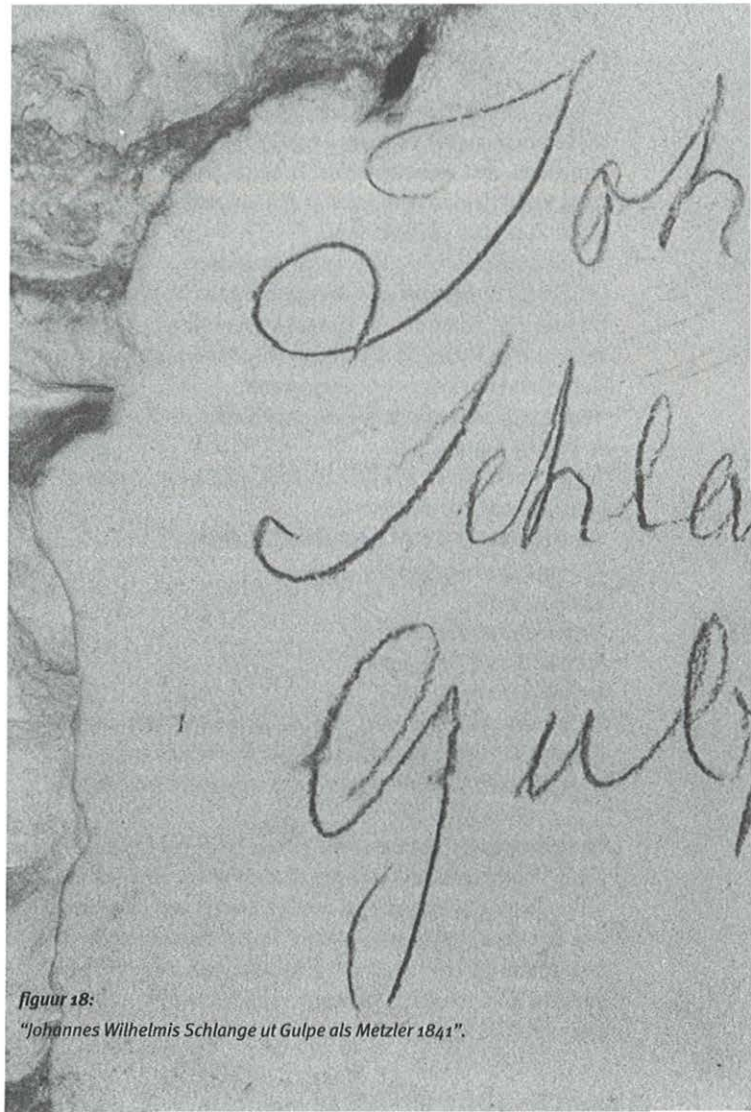 Joh
Schla
Gulp
figuur 18:
"Johannes Wilhelmis Schlange ut Gulpe als Metzler 1841".